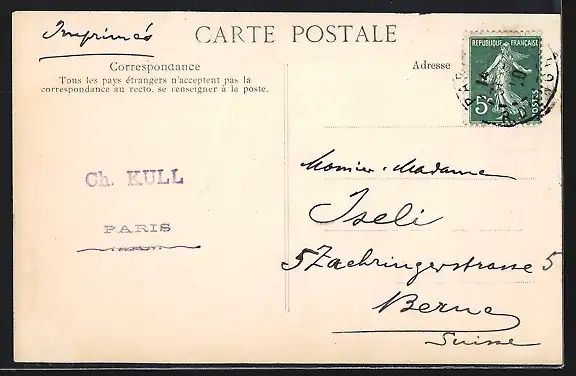 Imprimés
CARTE POSTALE
Correspondance
Tous les pays étrangers n'acceptent pas la
correspondance au recto, se renseigner à la poste.
Adresse
REPUBLIQUE FRANÇAISE
5c
POSTES
Ch. KULL
PARIS
Monsieur. Madame
Iseli
5 Zaehringerstrasse 5
Berne
Suisse